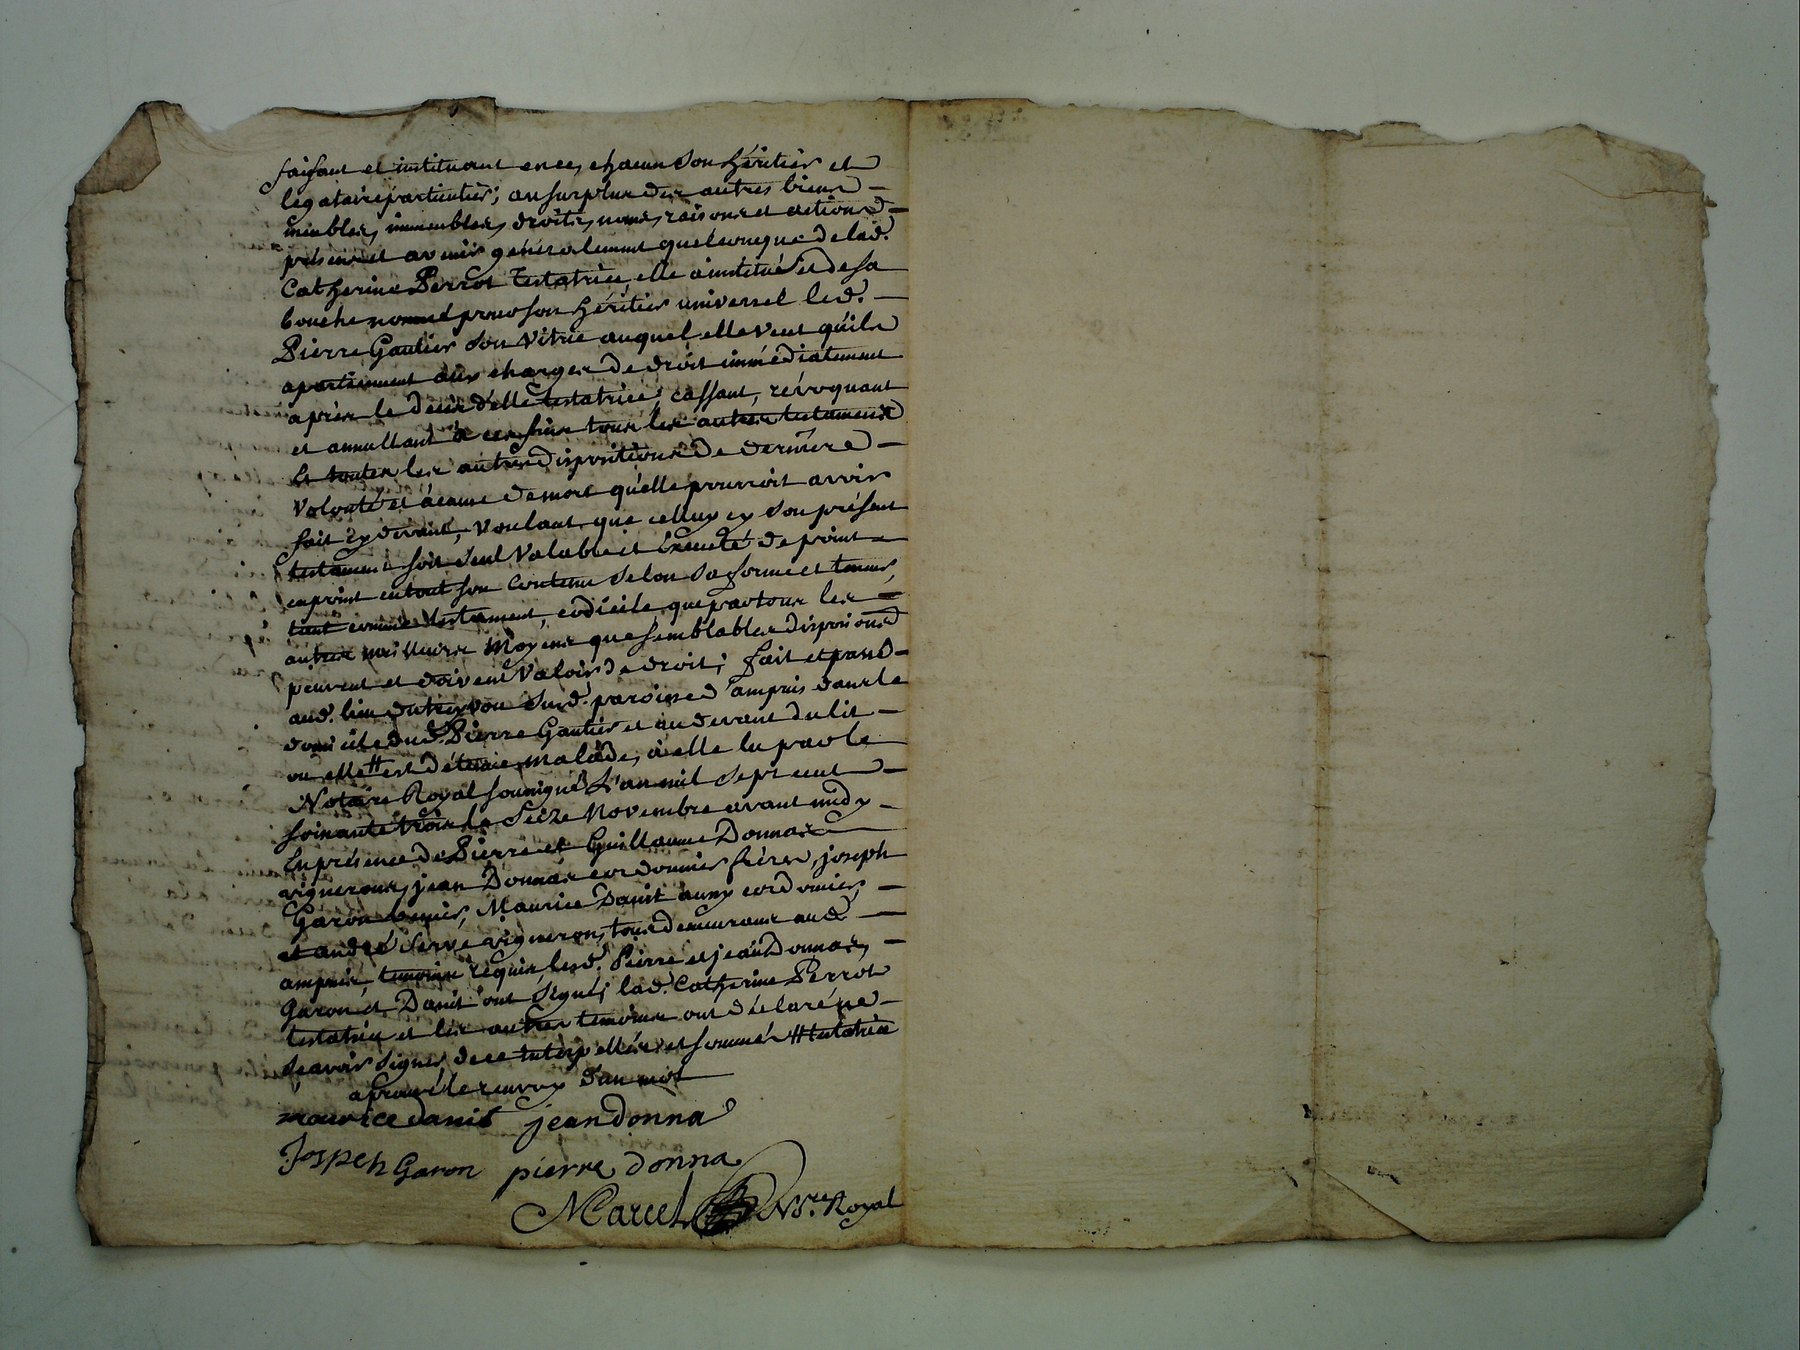 faisant et instituant en ce, chacun son héritier et
légataire particulier; au surplus des autres biens
meubles, immeubles, droits, noms, raisons et actions
présens et avenir généralement quelconque de lad.
Catherine Perrot testatrice, elle a institué et de sa
bouche nommé pour son héritier universel led.
Pierre Gautier son vitric auquel elle veut qu'ils
apartiennent aux charges de droit immédiatement
après le decès d'elle testatrice, cassant, révoquant
et annullant à ces fins tous les autres testamens
et toutes les autres dispositions de dernière
volonté et à cause de mort qu'elle pourroit avoir
fait cy devant, voulant que celluy cy son présent
testament soit seul valable et exécuté de point
en point en tout son contenu selon sa forme et teneur,
tant comme testament, codicile que par tous les
autres meilleurs moyens que semblables disposions
peuvent et doivent valoir de droit; fait et passé
aud. lieu susd. paroisse d'ampuis dans le
domicile dud. Pierre Gautier et au devant du lit
ou elle # est détenue malade, à elle lu par le
Notaire Royal soussigné L'an mil sept cent
soixante trois le seize Novembre avant midy
en présence de Pierre et Guillaume Donnas
vignerons, jean Donnas cordonnier frères, joseph
Garon, Maurice Danit aussy cordonnier,
et andré Serve vigneron, tous demeurans aud.
ampuis, temoins requis, lesd. Pierre et jean Donnas,
Garon et Danit ont signé; lad. Catherine Perrot
testatrice et les autres temoins ont déclaré ne
scavoir signer, de ce interpellés et sommés # testatrice
aprouvé le renvoy d'un mot
maurice danit jean donna
Jospeh Garon pierre donna
Marcel Nre. Royal